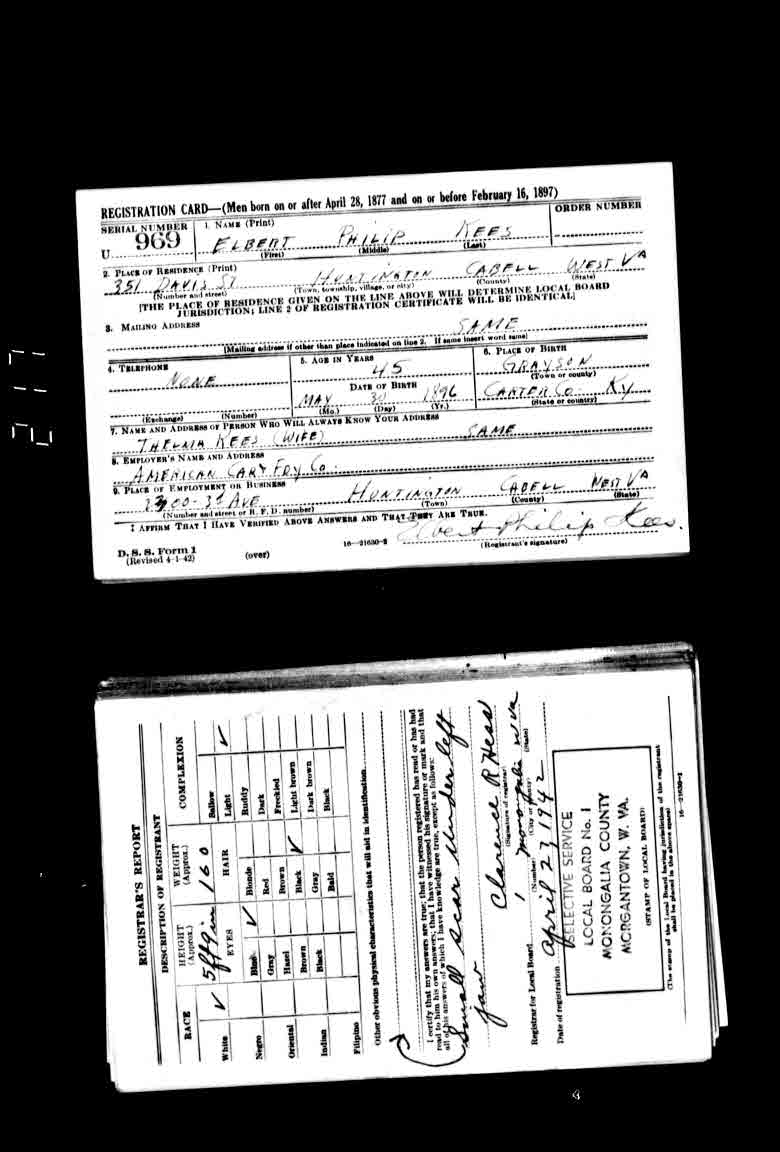 REGISTRATION CARD—(Men born on or after April 28, 1877 and on or before February 16, 1897)
SERIAL NUMBER 1. NAME (Print) ORDER NUMBER
U 969 ELBERT PHILIP KEES
(First) (Middle) (Last)
2. PLACE OF RESIDENCE (Print)
351 DAVIS ST HUNTINGTON CABELL WEST VA
(Number and street) (Town, township, village, or city) (County) (State)
[THE PLACE OF RESIDENCE GIVEN ON THE LINE ABOVE WILL DETERMINE LOCAL BOARD
JURISDICTION; LINE 2 OF REGISTRATION CERTIFICATE WILL BE IDENTICAL]
3. MAILING ADDRESS
SAME
[Mailing address if other than place indicated on line 2. If same insert word same]
4. TELEPHONE 5. AGE IN YEARS 6. PLACE OF BIRTH
NONE 45 GRAYSON
(Town or county)
DATE OF BIRTH
MAY 30 1896 CARTER CO. KY
(Exchange) (Number) (Mo.) (Day) (Yr.) (State or country)
7. NAME AND ADDRESS OF PERSON WHO WILL ALWAYS KNOW YOUR ADDRESS
THELMA KEES (WIFE) SAME
8. EMPLOYER'S NAME AND ADDRESS
AMERICAN CAR & FDY CO.
9. PLACE OF EMPLOYMENT OR BUSINESS
2300-3d AVE HUNTINGTON CABELL WEST VA
(Number and street or R. F. D. number) (Town) (County) (State)
I AFFIRM THAT I HAVE VERIFIED ABOVE ANSWERS AND THAT THEY ARE TRUE.
Elbert Philip Kees.
D. S. S. Form 1 16—21630-2 (Registrant's signature)
(Revised 4-1-42) (over)
REGISTRAR'S REPORT
DESCRIPTION OF REGISTRANT
RACE HEIGHT (Approx.) WEIGHT (Approx.) COMPLEXION
White ✓ 5 ft 9 in 160 Sallow
EYES HAIR Light ✓
Negro Blue ✓ Blonde Ruddy
Gray Red Dark
Oriental Hazel Brown Freckled
Brown Black ✓ Light brown
Indian Black Gray Dark brown
Filipino Bald Black
Other obvious physical characteristics that will aid in identification
I certify that my answers are true; that the person registered has read or has had
read to him his own answers; that I have witnessed his signature or mark and that
all of his answers of which I have knowledge are true, except as follows:
Small scar under left
jaw
Clarence R Hess
(Signature of registrar)
Registrar for Local Board 1 Monongalia W Va
(Number) (City or county) (State)
Date of registration April 23, 1942
SELECTIVE SERVICE
LOCAL BOARD No. 1
MONONGALIA COUNTY
MORGANTOWN, W. VA.
(STAMP OF LOCAL BOARD)
(The stamp of the Local Board having jurisdiction of the registrant
shall be placed in the above space)
16—21630-2